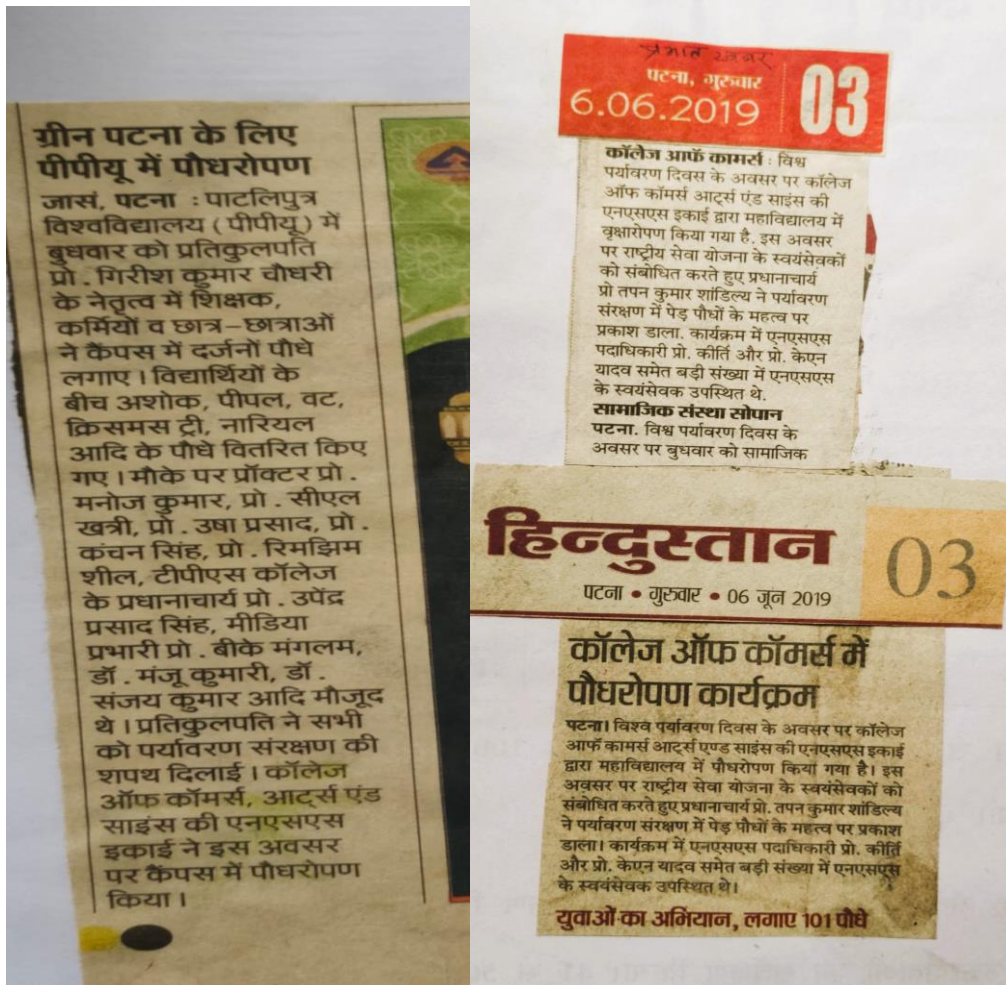 ग्रीन पटना के लिए
पीपीयू में पौधरोपण
जासं, पटना : पाटलिपुत्र
विश्वविद्यालय ( पीपीयू ) में
बुधवार को प्रतिकुलपति
प्रो . गिरीश कुमार चौधरी
के नेतृत्व में शिक्षक,
कर्मियों व छात्र-छात्राओं
ने कैंपस में दर्जनों पौधे
लगाए । विद्यार्थियों के
बीच अशोक, पीपल, वट,
क्रिसमस ट्री, नारियल
आदि के पौधे वितरित किए
गए । मौके पर प्रॉक्टर प्रो .
मनोज कुमार, प्रो . सीएल
खत्री, प्रो . उषा प्रसाद, प्रो .
कंचन सिंह, प्रो . रिमझिम
शील, टीपीएस कॉलेज
के प्रधानाचार्य प्रो . उपेंद्र
प्रसाद सिंह, मीडिया
प्रभारी प्रो . बीके मंगलम,
डॉ . मंजू कुमारी, डॉ .
संजय कुमार आदि मौजूद
थे । प्रतिकुलपति ने सभी
को पर्यावरण संरक्षण की
शपथ दिलाई । कॉलेज
ऑफ कॉमर्स, आर्ट्स एंड
साइंस की एनएसएस
इकाई ने इस अवसर
पर कैंपस में पौधरोपण
किया ।
प्रभात खबर
पटना, गुरुवार
6.06.2019
03
कॉलेज आफॅ कामर्स : विश्व
पर्यावरण दिवस के अवसर पर कॉलेज
ऑफ कॉमर्स आर्ट्स एंड साइंस की
एनएसएस इकाई द्वारा महाविद्यालय में
वृक्षारोपण किया गया है. इस अवसर
पर राष्ट्रीय सेवा योजना के स्वयंसेवकों
को संबोधित करते हुए प्रधानाचार्य
प्रो तपन कुमार शांडिल्य ने पर्यावरण
संरक्षण में पेड़ पौधों के महत्व पर
प्रकाश डाला. कार्यक्रम में एनएसएस
पदाधिकारी प्रो. कीर्ति और प्रो. केएन
यादव समेत बड़ी संख्या में एनएसएस
के स्वयंसेवक उपस्थित थे.
सामाजिक संस्था सोपान
पटना. विश्व पर्यावरण दिवस के
अवसर पर बुधवार को सामाजिक
हिन्दुस्तान
03
पटना • गुरुवार • 06 जून 2019
कॉलेज ऑफ कॉमर्स में
पौधरोपण कार्यक्रम
पटना। विश्व पर्यावरण दिवस के अवसर पर कॉलेज
आफॅ कामर्स आर्ट्स एण्ड साइंस की एनएसएस इकाई
द्वारा महाविद्यालय में पौधरोपण किया गया है। इस
अवसर पर राष्ट्रीय सेवा योजना के स्वयंसेवकों को
संबोधित करते हुए प्रधानाचार्य प्रो. तपन कुमार शांडिल्य
ने पर्यावरण संरक्षण में पेड़ पौधों के महत्व पर प्रकाश
डाला। कार्यक्रम में एनएसएस पदाधिकारी प्रो. कीर्ति
और प्रो. केएन यादव समेत बड़ी संख्या में एनएसएस
के स्वयंसेवक उपस्थित थे।
युवाओं का अभियान, लगाए 101 पौधे